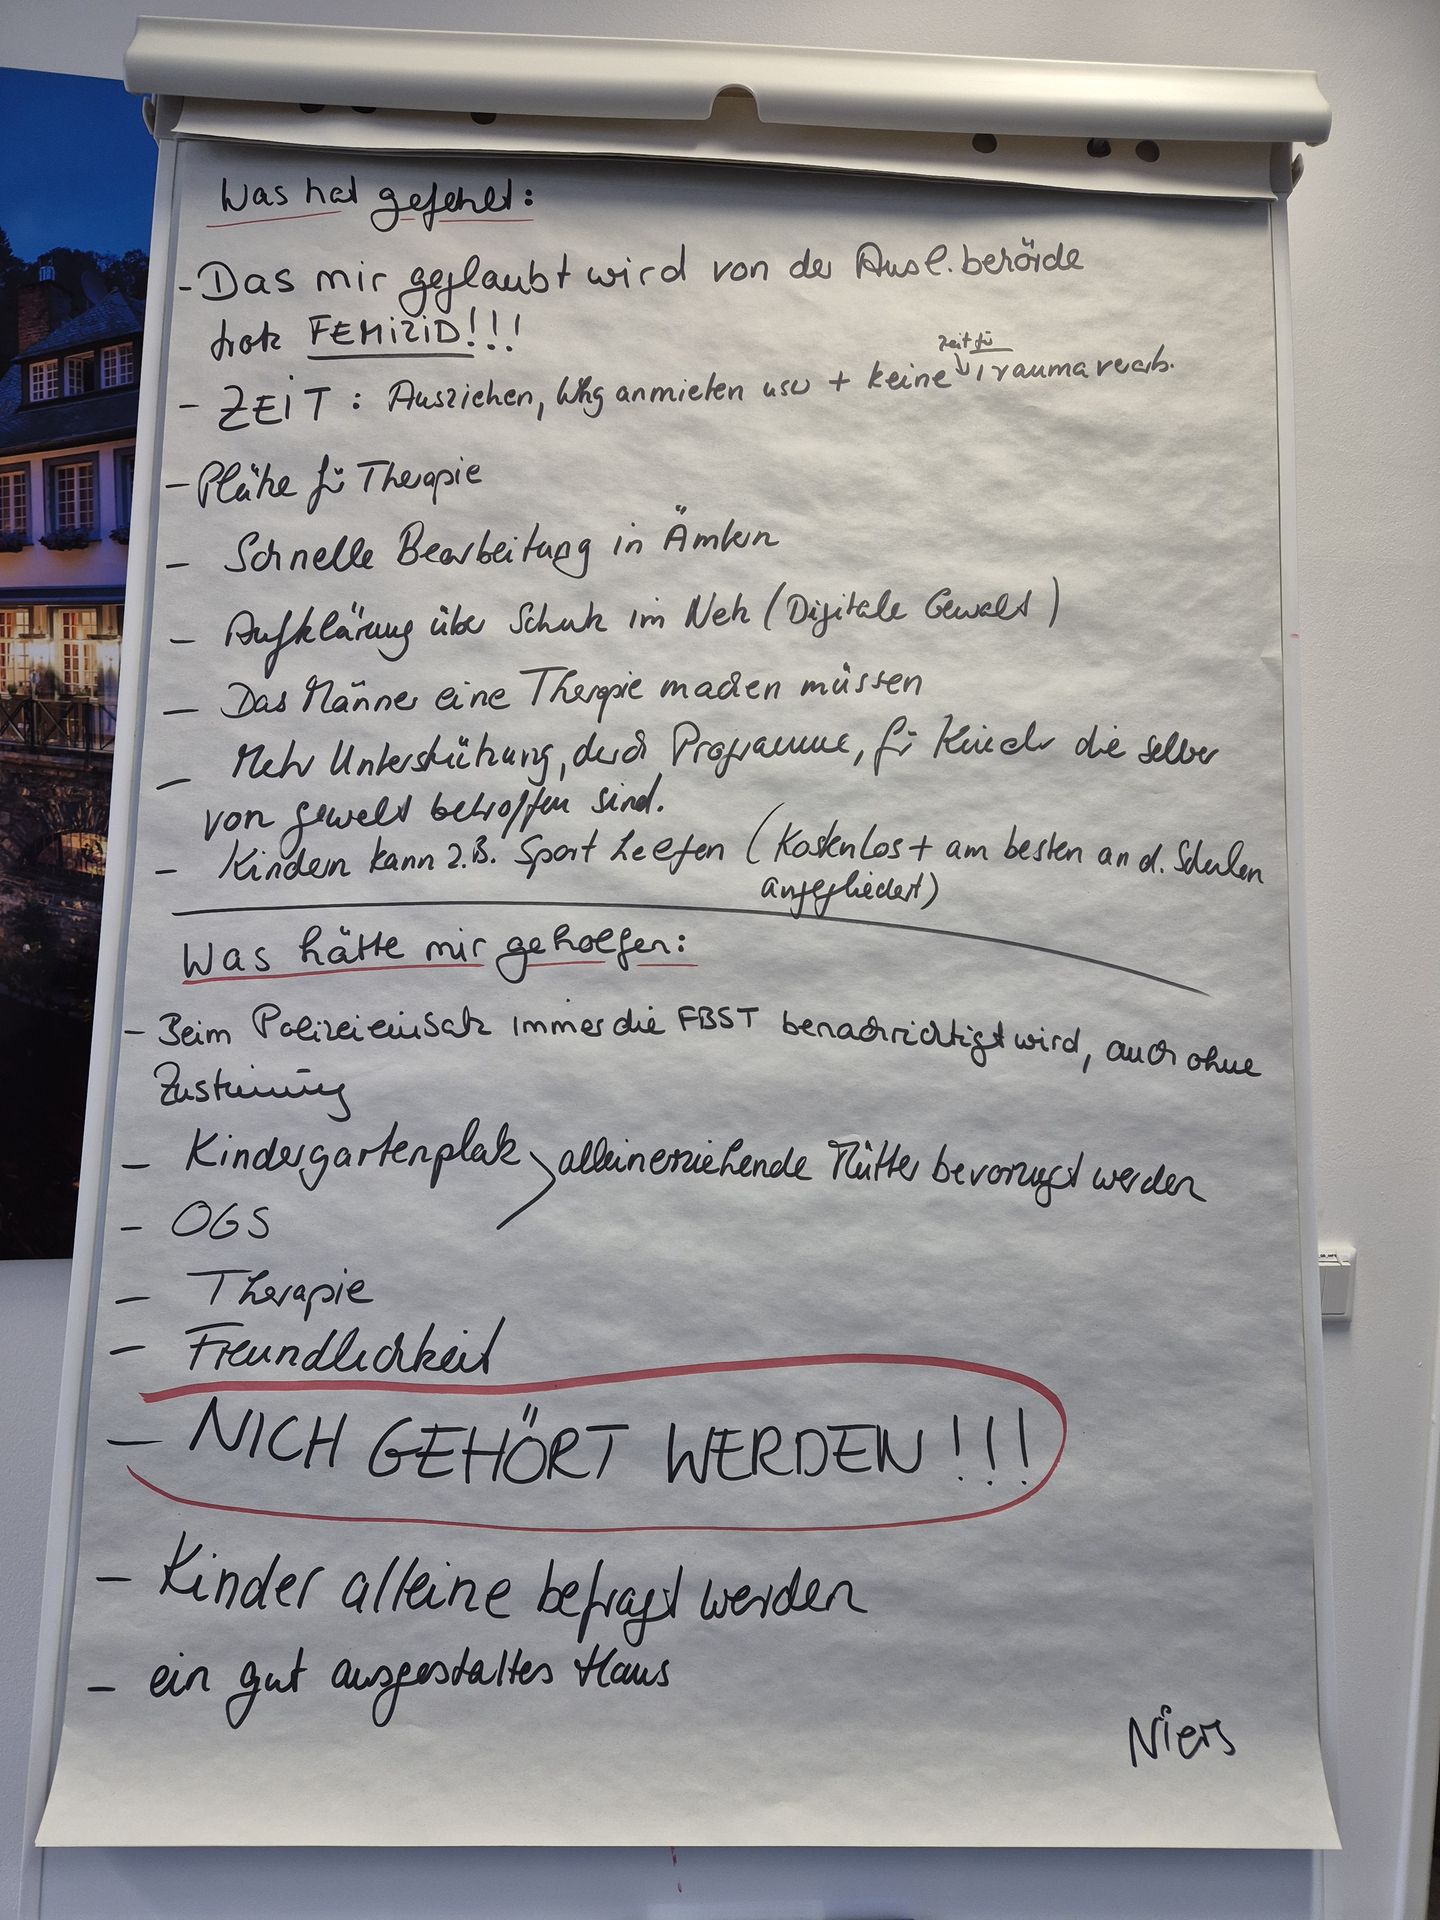 Was hat gefehlt:
- Das mir geglaubt wird von der Ausl.behörde
trotz FEMIZID!!!
zeit für
- ZEIT : Ausziehen, Whg anmieten usw + keine Traumaverarb.
- Plätze für Therapie
- Schnelle Bearbeitung in Ämtern
- Aufklärung über Schutz im Netz (Digitale Gewalt)
- Das Männer eine Therapie machen müssen
- Mehr Unterstützung, durch Programme, für Kinder die selber
von Gewalt betroffen sind.
- Kindern kann z.B. Sport helfen (Kostenlos + am besten an d. Schulen
angegliedert)
Was hätte mir geholfen:
- Beim Polizeieinsatz immer die FBST benachrichtigt wird, auch ohne
Zustimmung
- Kindergartenplatz alleinerziehende Mütter bevorzugt werden
- OGS
- Therapie
- Freundlichkeit
- NICH GEHÖRT WERDEN!!!
- Kinder alleine befragt werden
- ein gut ausgestaltes Haus
Niers